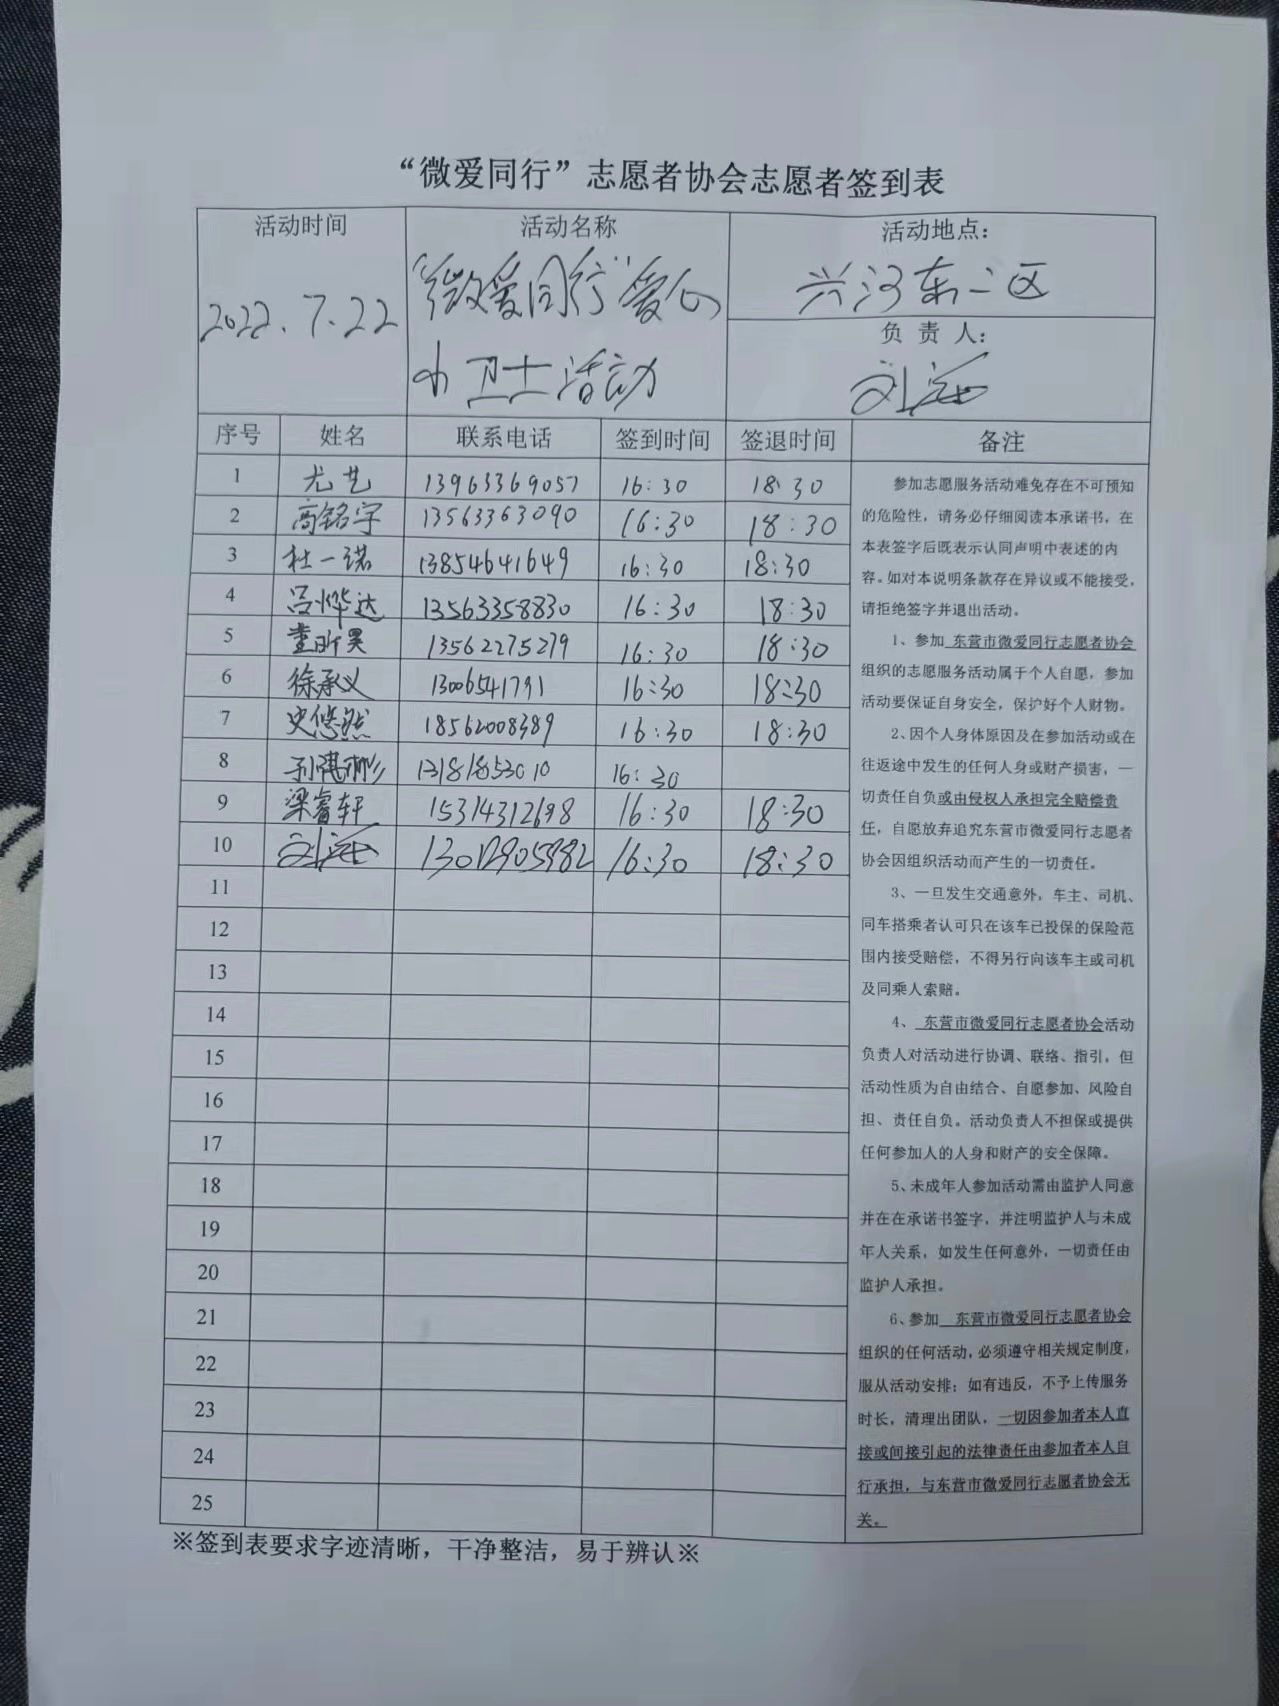 “微爱同行”志愿者协会志愿者签到表
活动时间
2022.7.22
活动名称
“微爱同行”爱心
小卫士活动
活动地点：
兴河东二区
负 责 人：
序号 姓名 联系电话 签到时间 签退时间 备注
1 尤艺 13963369057 16:30 18:30
2 高铭宇 13563363090 16:30 18:30
3 杜一诺 13854641649 16:30 18:30
4 吕烨达 13563358830 16:30 18:30
5 董昕昊 13562275279 16:30 18:30
6 徐承义 13006541791 16:30 18:30
7 史悠然 18562008389 16:30 18:30
8 13181853010 16:30
9 梁睿轩 15314312698 16:30 18:30
10 16:30 18:30
11
12
13
14
15
16
17
18
19
20
21
22
23
24
25
参加志愿服务活动难免存在不可预知
的危险性，请务必仔细阅读本承诺书，在
本表签字后既表示认同声明中表述的内
容。如对本说明条款存在异议或不能接受，
请拒绝签字并退出活动。
1、参加 东营市微爱同行志愿者协会
组织的志愿服务活动属于个人自愿，参加
活动要保证自身安全，保护好个人财物。
2、因个人身体原因及在参加活动或在
往返途中发生的任何人身或财产损害，一
切责任自负或由侵权人承担完全赔偿责
任，自愿放弃追究东营市微爱同行志愿者
协会因组织活动而产生的一切责任。
3、一旦发生交通意外，车主、司机、
同车搭乘者认可只在该车已投保的保险范
围内接受赔偿，不得另行向该车主或司机
及同乘人索赔。
4、 东营市微爱同行志愿者协会活动
负责人对活动进行协调、联络、指引，但
活动性质为自由结合、自愿参加、风险自
担、责任自负。活动负责人不担保或提供
任何参加人的人身和财产的安全保障。
5、未成年人参加活动需由监护人同意
并在在承诺书签字，并注明监护人与未成
年人关系，如发生任何意外，一切责任由
监护人承担。
6、参加 东营市微爱同行志愿者协会
组织的任何活动，必须遵守相关规定制度，
服从活动安排；如有违反，不予上传服务
时长，清理出团队，一切因参加者本人直
接或间接引起的法律责任由参加者本人自
行承担，与东营市微爱同行志愿者协会无
关。
※签到表要求字迹清晰，干净整洁，易于辨认※